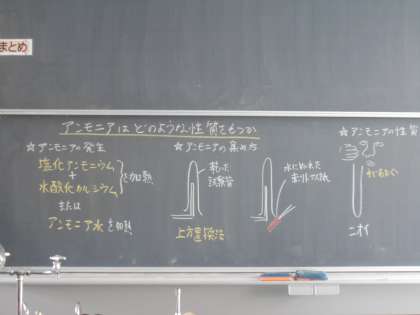 まとめ
アンモニアはどのような性質をもつか
☆アンモニアの発生
塩化アンモニウム
+
水酸化カルシウム
を加熱
または
アンモニア水を加熱
☆アンモニアの集め方
乾いた
試験管
上方置換法
水にぬれた
赤リトマス紙
☆アンモニアの性質
手であおぐ
ニオイ